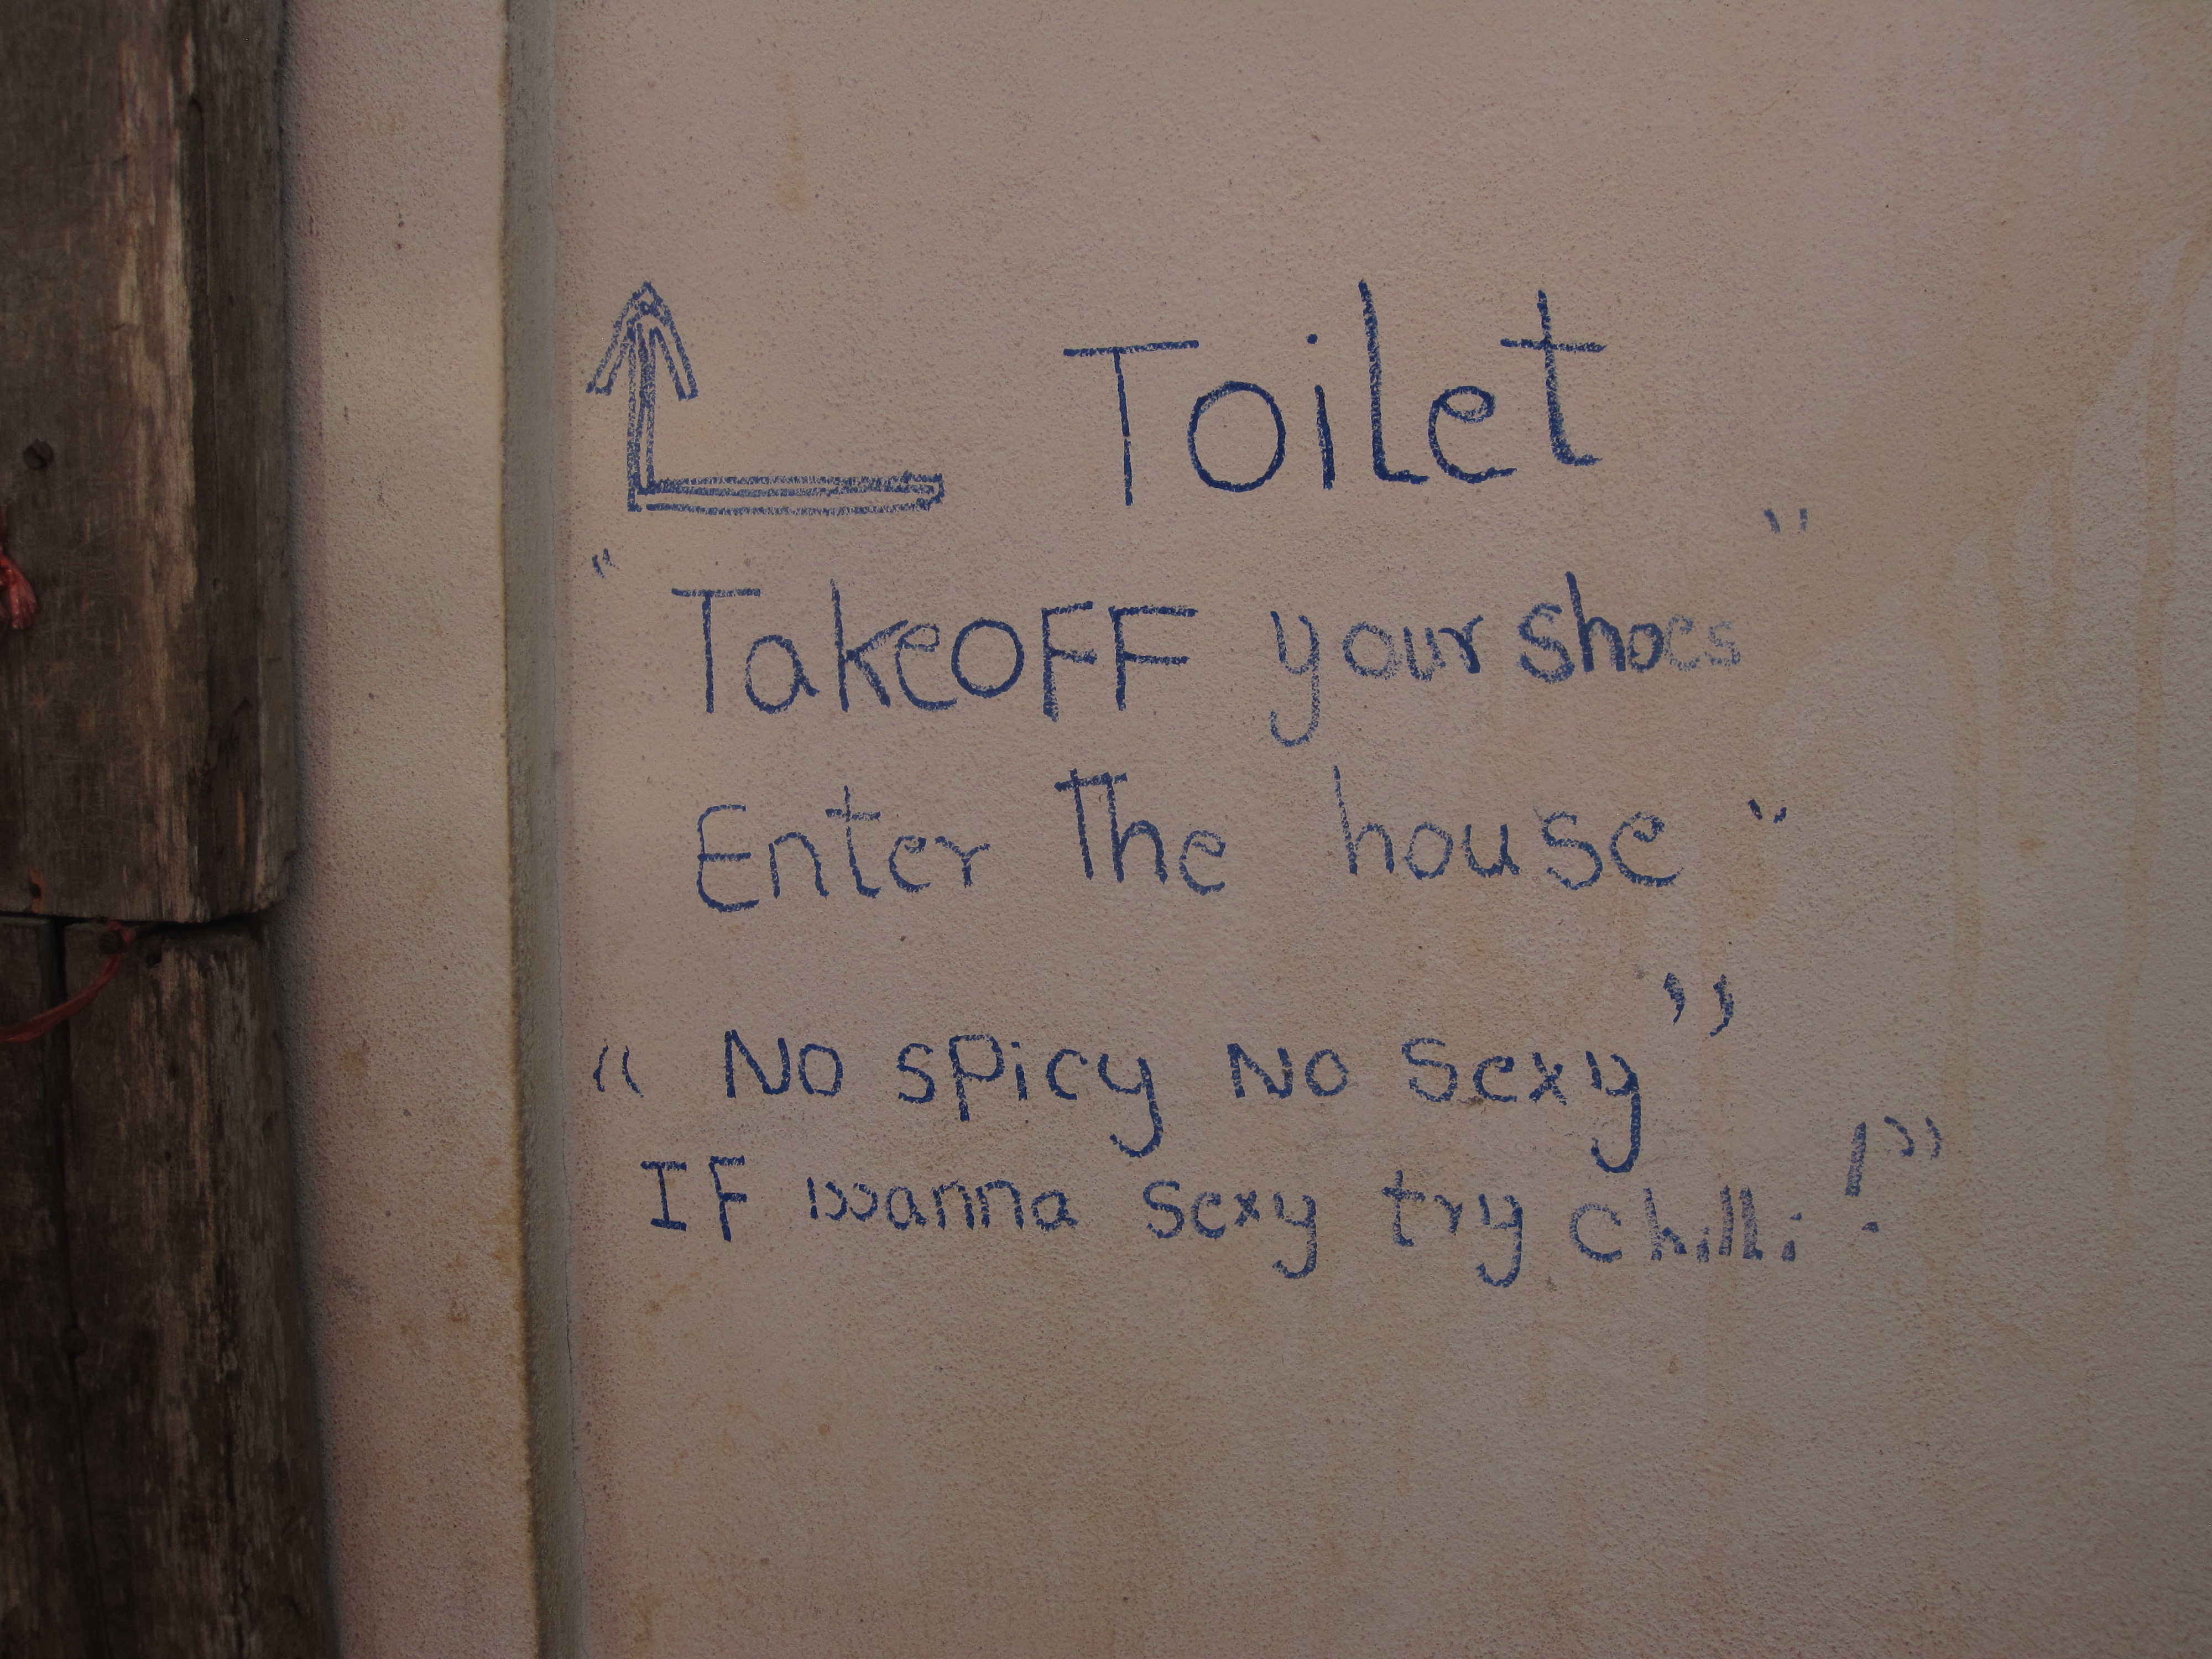 Toilet
" TakeOFF your shoes "
Enter The house "
" No spicy No Sexy "
IF wanna Sexy try Chilli ! "